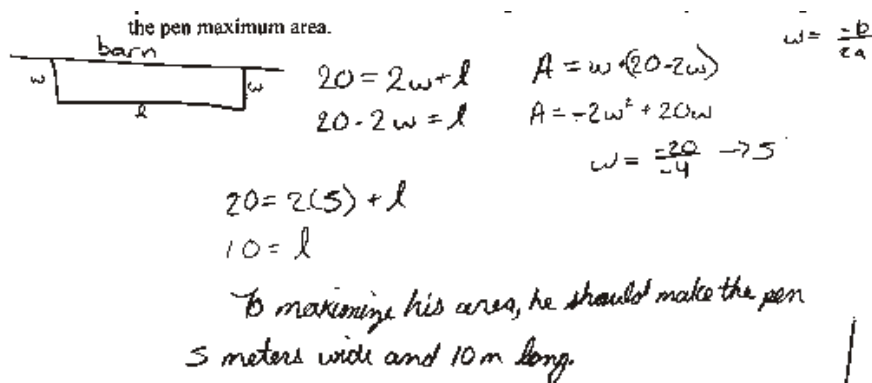 the pen maximum area.
barn
w w
l
20 = 2w + l
20 - 2w = l
A = w·(20-2w)
A = -2w² + 20w
w = -20/-4 → 5
w = -b/2a
20 = 2(5) + l
10 = l
To maximize his area, he should make the pen
5 meters wide and 10 m long.